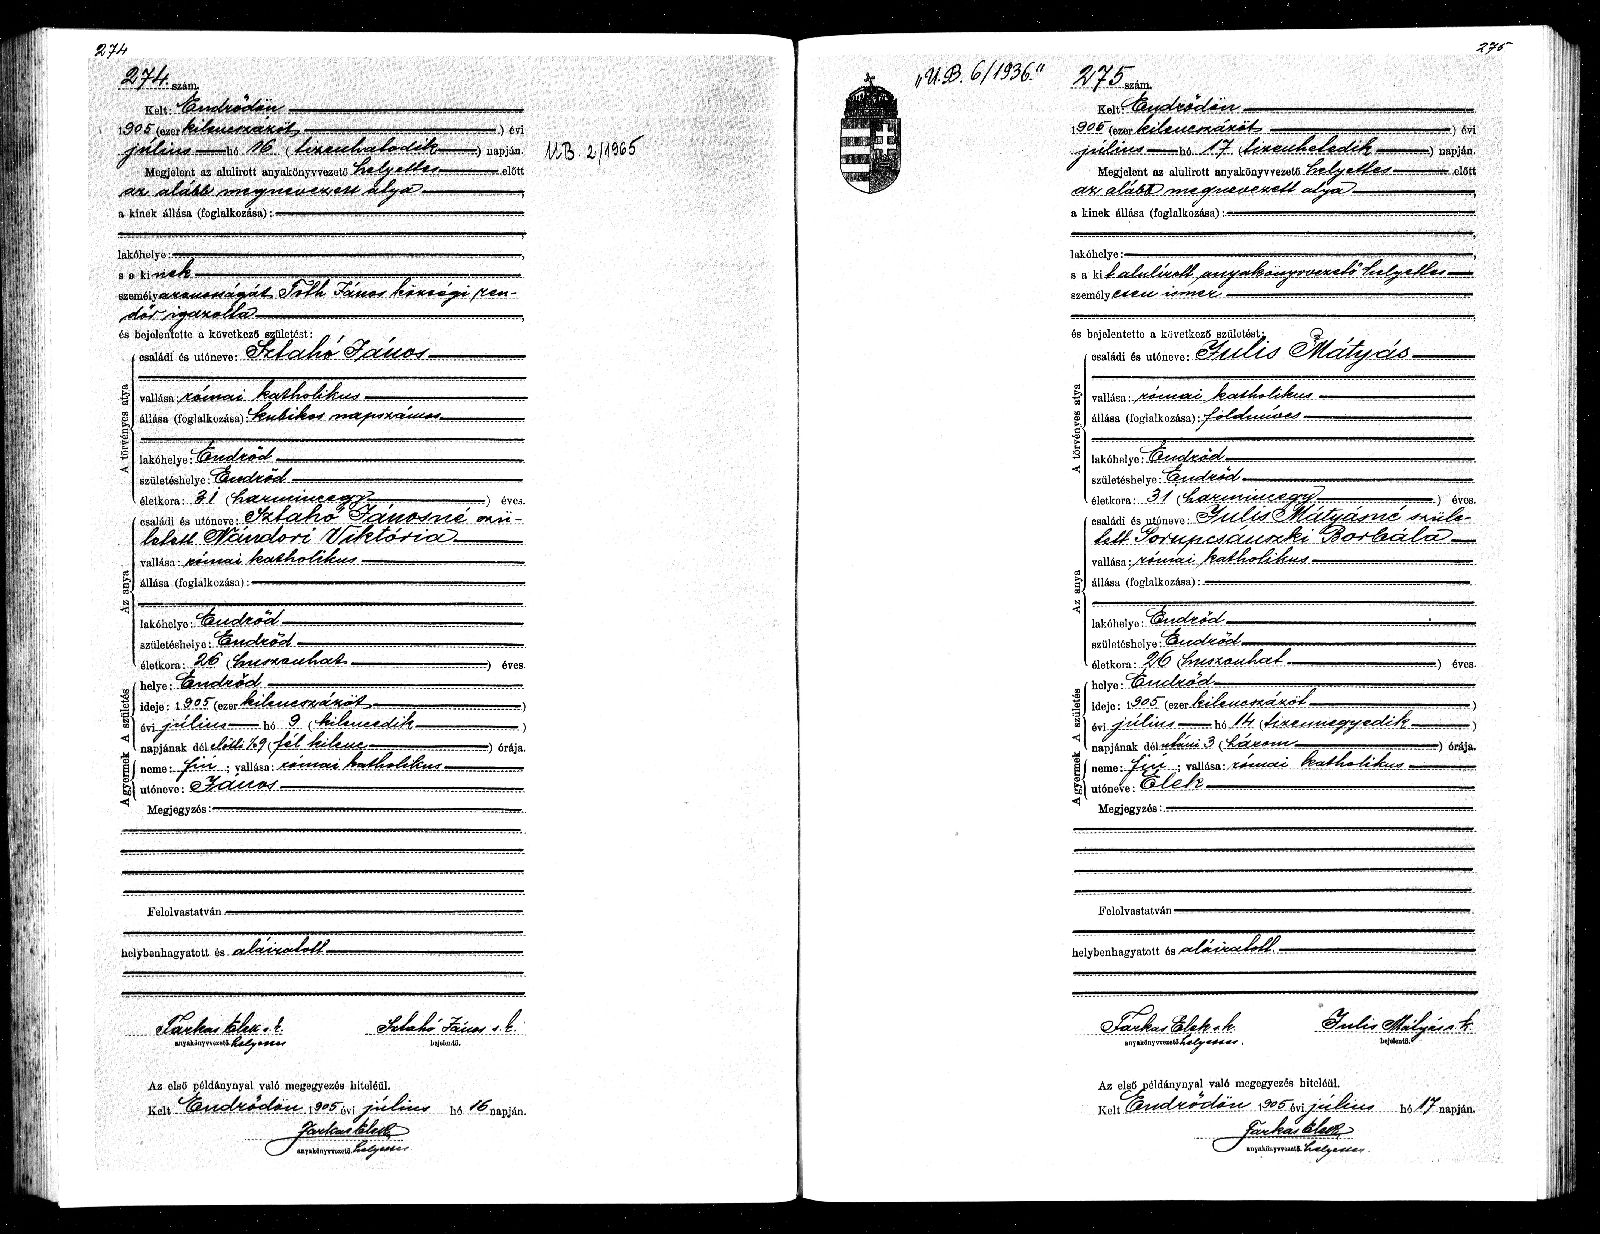 274
274. szám.
Kelt Endrődön
1905 (ezer kilenczszázöt) évi
július hó 16 (tizenhatodik) napján.
U.B. 2/1965
Megjelent az alulirott anyakönyvvezető helyettes előtt
az alább megnevezett atya,
a kinek állása (foglalkozása):
lakóhelye:
s a kinek
személyazonosságát Tóth János községi ren-
dőr igazolta,
és bejelentette a következő születést:
A törvényes atya
családi és utóneve: Sztahó János
vallása: római katholikus
állása (foglalkozása): kubikos napszámos
lakóhelye: Endrőd
születéshelye: Endrőd
életkora: 31 (harminczegy) éves.
Az anya
családi és utóneve: Sztahó Jánosné szü-
letett Nándori Viktória
vallása: római katholikus
állása (foglalkozása):
lakóhelye: Endrőd
születéshelye: Endrőd
életkora: 26 (huszonhat) éves.
A gyermek A születés
helye: Endrőd
ideje: 1905 (ezer kilenczszázöt)
évi július hó 9 (kilenczedik)
napjának dél előtti ½9 (fél kilenc) órája.
neme: fiú; vallása: római katholikus
utóneve: János
Megjegyzés:
Felolvastatván
helybenhagyatott és aláíratott
Farkas Elek s. k. Sztahó János s. k.
anyakönyvvezető helyettes bejelentő.
Az első példánynyal való megegyezés hiteléül.
Kelt Endrődön 1905 évi július hó 16 napján.
Farkas Elek
anyakönyvvezető helyettes
275
„U.B. 6/1936."
275 szám.
Kelt Endrődön
1905 (ezer kilenczszázöt) évi
július hó 17 (tizenhetedik) napján.
Megjelent az alulirott anyakönyvvezető helyettes előtt
az alább megnevezett atya,
a kinek állása (foglalkozása):
lakóhelye:
s a kit alulírott anyakönyvvezető helyettes
személyesen ismer
és bejelentette a következő születést:
A törvényes atya
családi és utóneve: Iulis Mátyás
vallása: római katholikus
állása (foglalkozása): földmíves
lakóhelye: Endrőd
születéshelye: Endrőd
életkora: 31 (harminczegy) éves.
Az anya
családi és utóneve: Iulis Mátyásné szüle-
tett Borbála
vallása: római katholikus
állása (foglalkozása):
lakóhelye: Endrőd
születéshelye: Endrőd
életkora: 26 (huszonhat) éves.
A gyermek A születés
helye: Endrőd
ideje: 1905 (ezer kilenczszázöt)
évi július hó 14 (tizennegyedik)
napjának dél utáni 3 (három) órája.
neme: fiú; vallása: római katholikus
utóneve: Elek
Megjegyzés:
Felolvastatván
helybenhagyatott és aláíratott
Farkas Elek s. k. Iulis Mátyás s. k.
anyakönyvvezető helyettes. bejelentő.
Az első példánynyal való megegyezés hiteléül.
Kelt Endrődön 1905 évi július hó 17 napján.
Farkas Elek
anyakönyvvezető helyettes.